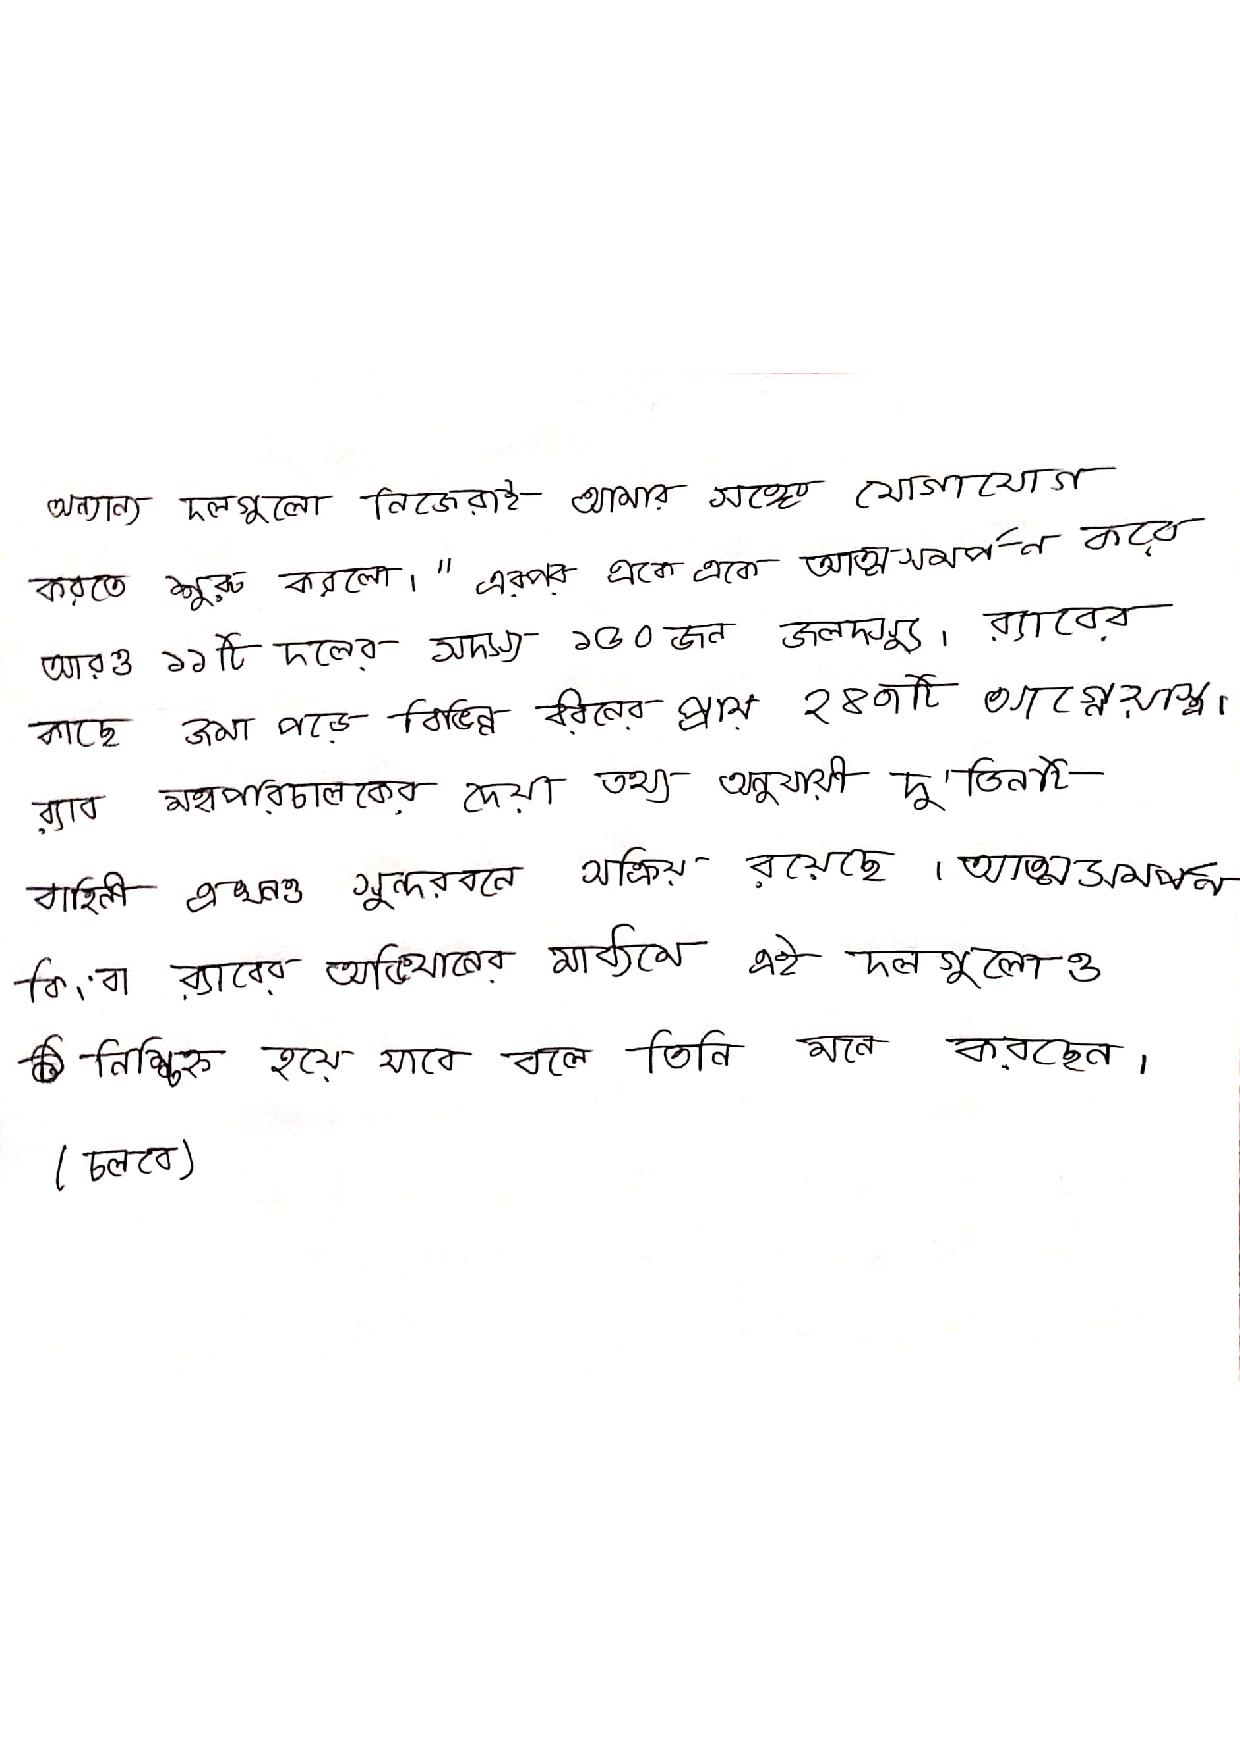 অন্যান্য দলগুলো নিজেরাই আমার সঙ্গে যোগাযোগ
করতে শুরু করলো।" এরপর একে একে আত্মসমর্পন করে
আরও ১১টি দলের সদস্য ১৩০জন জলদস্যু। র‍্যাবের
কাছে জমা পড়ে বিভিন্ন ধরনের প্রায় ২৪৩টি আগ্নেয়াস্ত্র।
র‍্যাব মহাপরিচালকের দেয়া তথ্য অনুযায়ী দু'তিনটি
বাহিনী এখনও সুন্দরবনে সক্রিয় রয়েছে। আত্মসমর্পন
কিংবা র‍্যাবের অভিযানের মাধ্যমে এই দলগুলোও
নিশ্চিহ্ন হয়ে যাবে বলে তিনি মনে করছেন।
(চলবে)